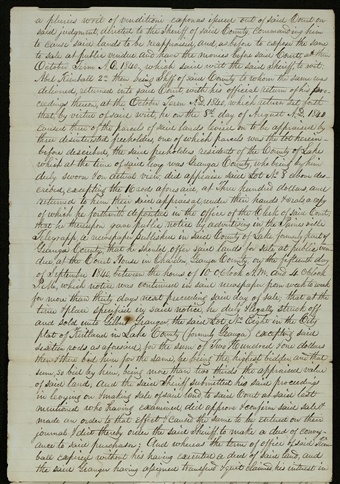 a pluries writ of venditioni exponas issued out of said Court on
said judgment directed to the Sheriff of said County Commanding him
to cause said lands to be reappraised, and, as before to expose the same
to sale at public vendue and have the monies before said Court at their
October Term A.D. 1840, which said writ the said Sheriff to wit
Abel Kimball 2d then being Shff of said County to whom the same was
delivered, returned into said Court with his official return of his pro-
ceedings thereon, at the October Term A.D. 1840, which return set forth
that by virtue of said writ, he on the 8th day of August A.D. 1840
caused three of the parcels of said lands levied on to be appraised by
three disinterested freeholders, one of which parcels was the lot herein
before described, the same freeholders residents of the County of Lake
which at the time of said levy was Geauga County, who being by him
duly sworn & on actual view, did appraise said Lot No 8 above des-
cribed, excepting the 16 rods aforesaid, at Three hundred dollars, and
returned to him their said appraisal under their hands & seals a copy
of which he forthwith deposited in the office of the Clerk of said Court
that he thereupon gave public notice by advertising in the Painesville
Telegraph a newspaper published in said County of Lake formerly part of
Geauga County, that he should offer said lands for sale at public ven-
due at the Court House in Chardon Geauga County, on the fifteenth day
of September 1840 between the hours of 10 O'clock A.M. and 4 O'clock
P.M., which notice was continued in said newspaper from week to week
for more than thirty days next preceding said day of sale; that at the
time & place specified in said notice, he duly & legally struck off
and sold unto Gilbert Granger the said Lot No Eight in the City
plat of Kirtland in Lake County (formerly Geauga) excepting said
sixteen rods as aforesaid for the sum of Two Hundred & one dollars
then & there bid by him for the same, he being the highest bidder, and that
sum, so bid by him, being more than two thirds the appraised value
of said land, And the said Sheriff submitted his said proceedings
in levying on & making sale of said land to said Court at said last
mentioned who having examined did approve & confirm said sale &
made an order to that effect & cause the same to be entered on their
journal & did thereby order the said Sheriff to make a deed of convey-
ance to said purchaser; And whereas the term of office of said Kim-
ball expired without his having executed a deed of said land, and
the said Granger having assigned transfered & quit claimed his interest in